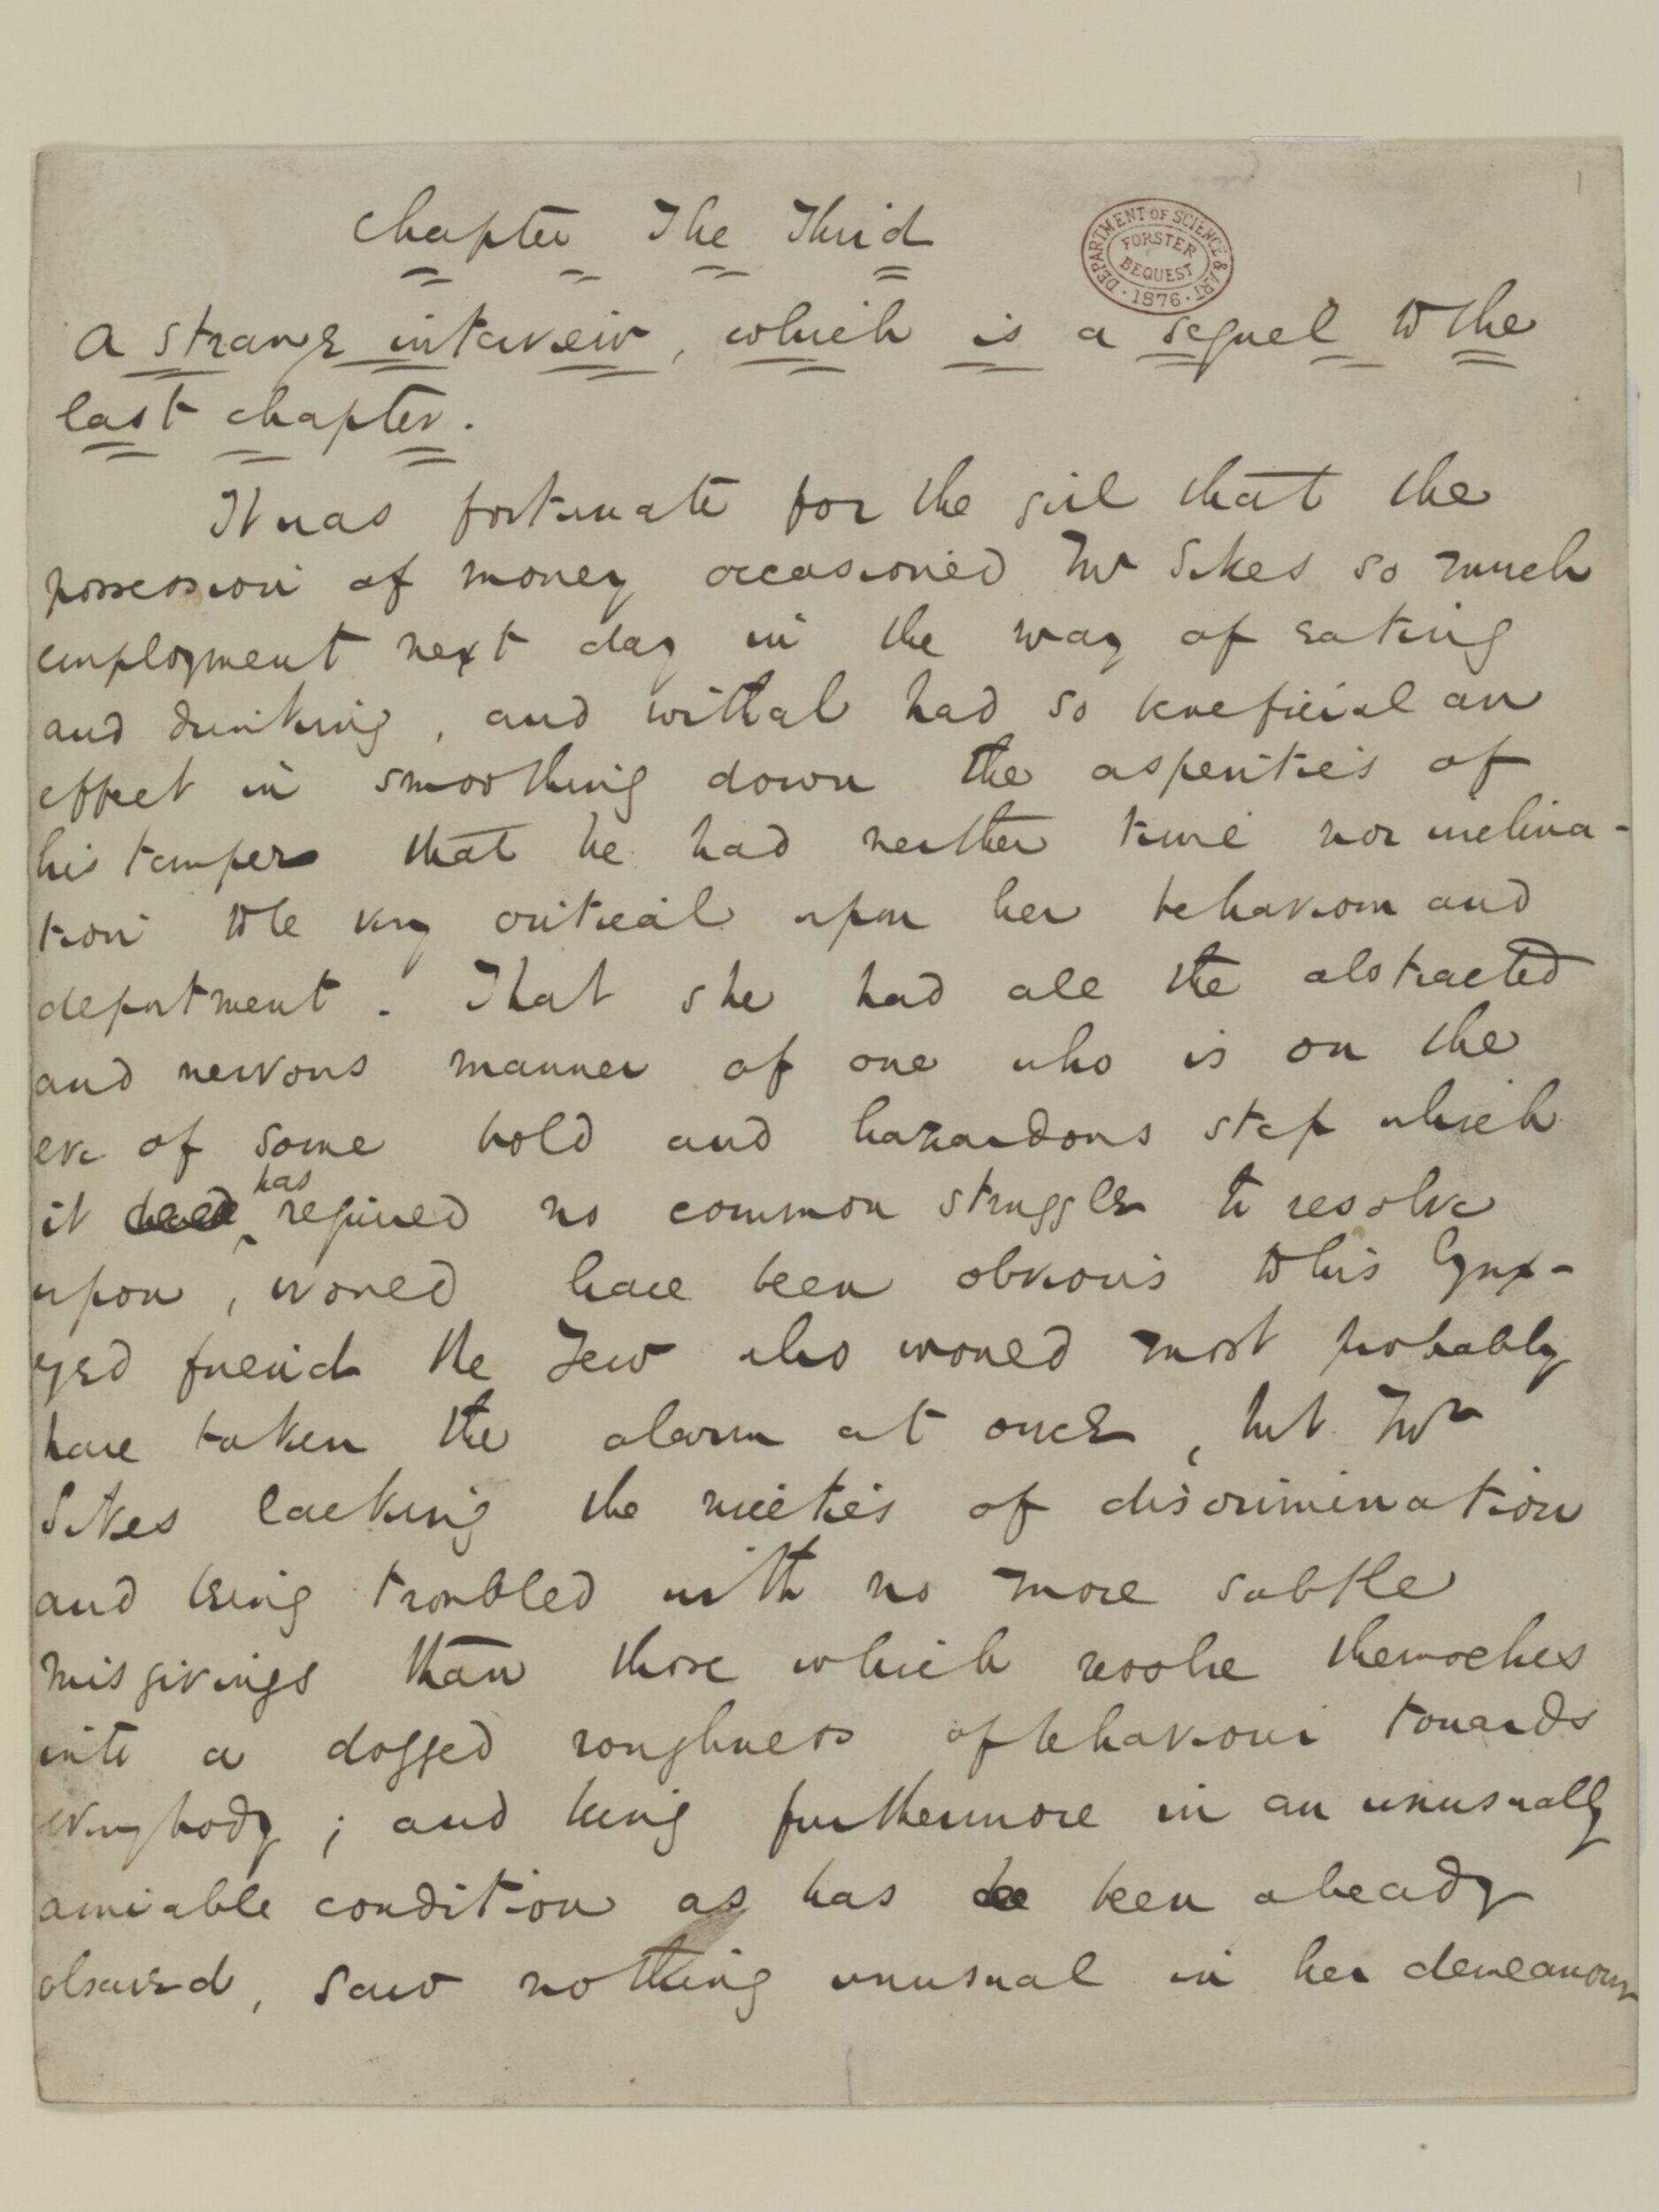 Chapter The Third
DEPARTMENT OF SCIENCE & ART
FORSTER
BEQUEST
1876
1
A strange interview, which is a sequel to the
last chapter.
It was fortunate for the girl that the
possession of money occasioned Mr Sikes so much
employment next day in the way of eating
and drinking, and withal had so beneficial an
effect in smoothing down the asperities of
his temper that he had neither time nor inclina-
tion to be very critical upon her behaviour and
deportment. That she had all the abstracted
and nervous manner of one who is on the
eve of some bold and hazardous step which
it has required no common struggle to resolve
upon, would have been obvious to his lynx-
eyed friend the Jew who would most probably
have taken the alarm at once, but Mr
Sikes lacking the niceties of discrimination
and being troubled with no more subtle
misgivings than those which resolve themselves
into a dogged roughness of behaviour towards
everybody; and being furthermore in an unusually
amiable condition as has been already
observed, saw nothing unusual in her demeanour